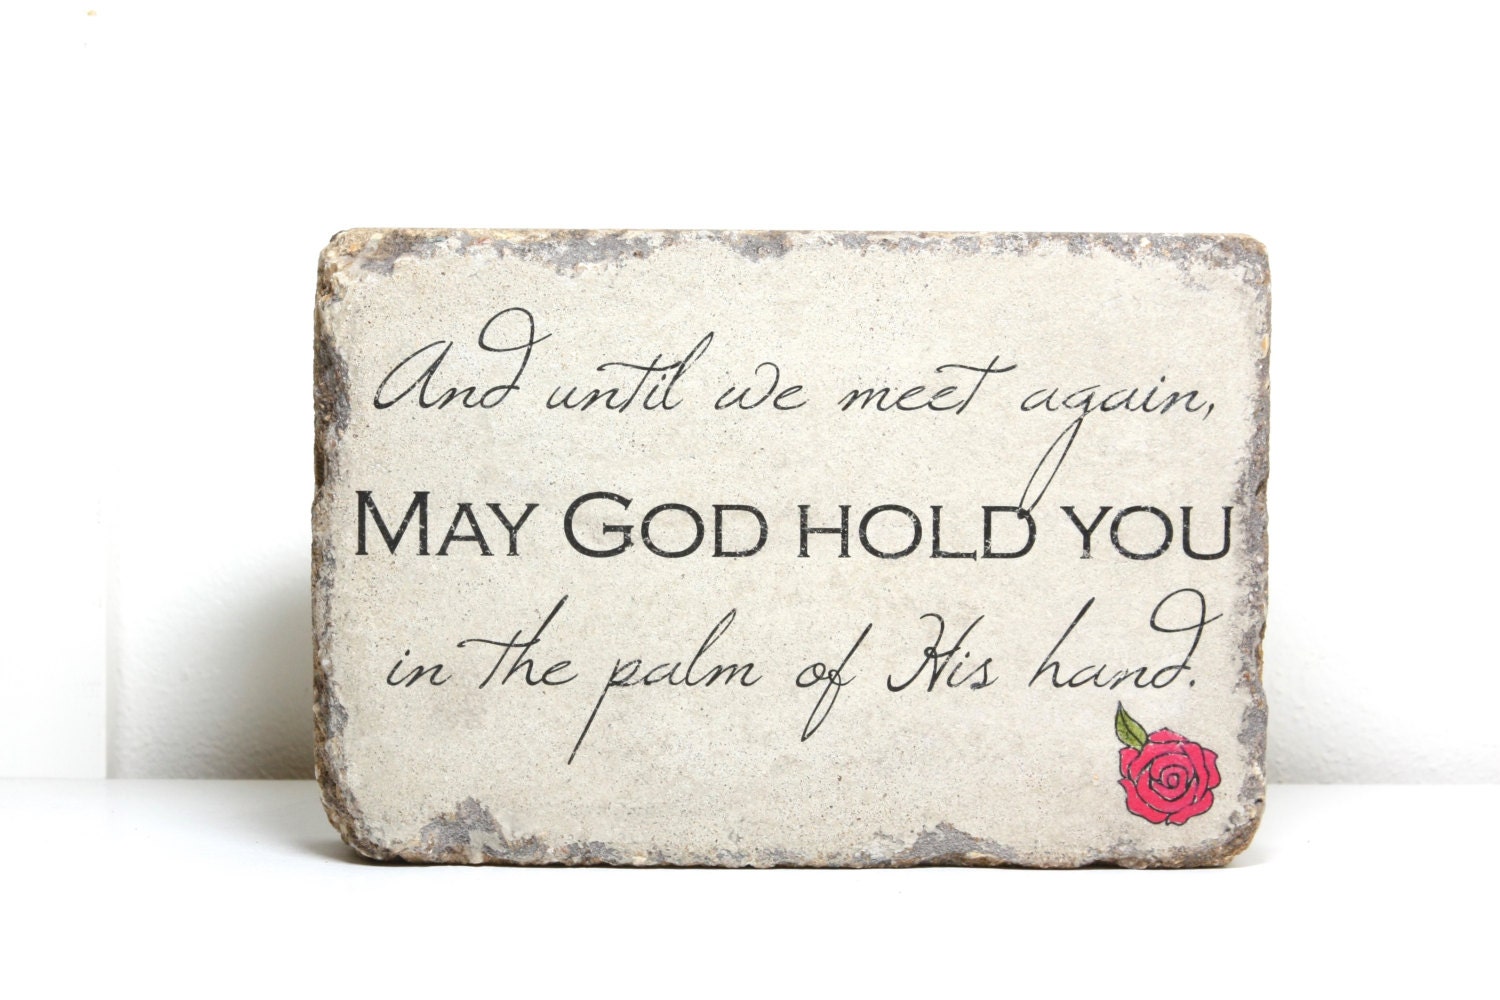 And until we meet again,
MAY GOD HOLD YOU
in the palm of His hand.